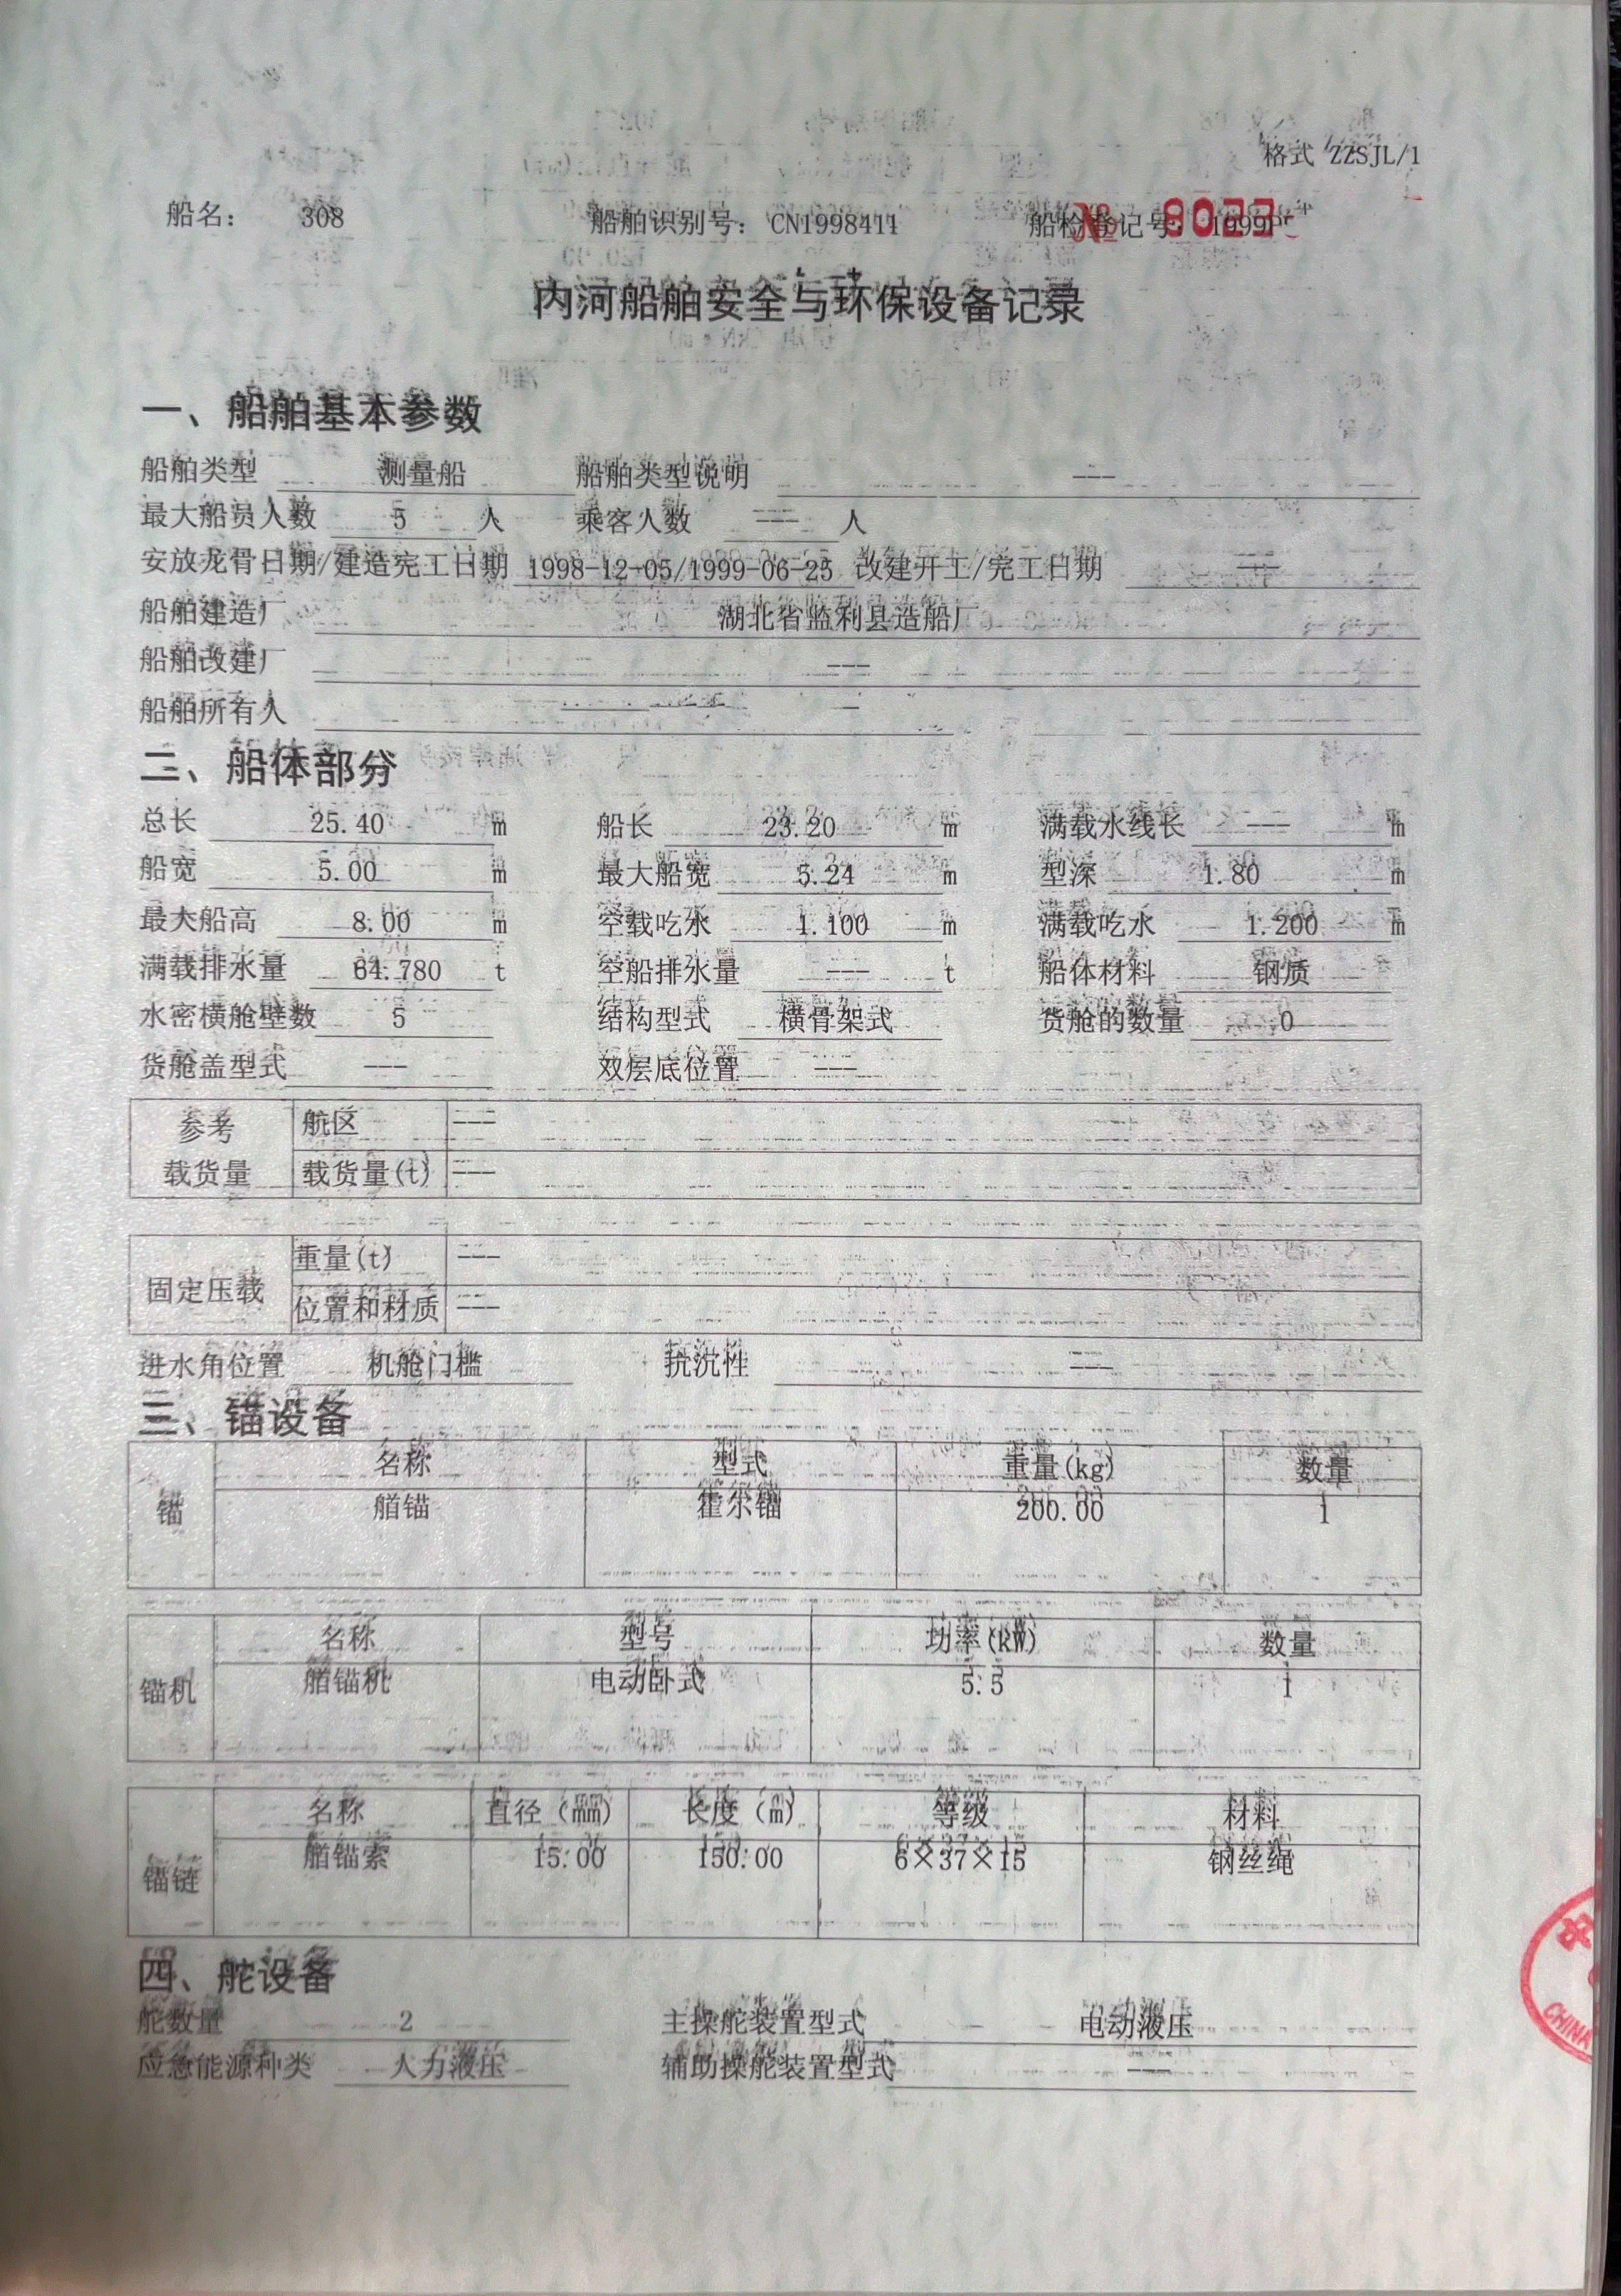 格式 ZZSJL/1
船名： 308 船舶识别号：CN1998411 船检登记号：1999P
内河船舶安全与环保设备记录
一、船舶基本参数
船舶类型 测量船 船舶类型说明 ---
最大船员人数 5 人 乘客人数 --- 人
安放龙骨日期/建造完工日期 1998-12-05/1999-06-25 改建开工/完工日期 ---
船舶建造厂 湖北省监利县造船厂
船舶改建厂 ---
船舶所有人
二、船体部分
总长 25.40 m 船长 23.20 m 满载水线长 --- m
船宽 5.00 m 最大船宽 5.24 m 型深 1.80 m
最大船高 8.00 m 空载吃水 1.100 m 满载吃水 1.200 m
满载排水量 64.780 t 空船排水量 --- t 船体材料 钢质
水密横舱壁数 5 结构型式 横骨架式 货舱的数量 0
货舱盖型式 --- 双层底位置 ---
参考 航区 ---
载货量 载货量(t) ---
固定压载 重量(t) ---
位置和材质 ---
进水角位置 机舱门槛 抗沉性 ---
三、锚设备
名称 型式 重量(kg) 数量
锚 艏锚 霍尔锚 200.00 1
名称 型号 功率(kW) 数量
锚机 艏锚机 电动卧式 5.5 1
名称 直径（mm） 长度（m） 等级 材料
锚链 艏锚索 15.00 150.00 6×37×15 钢丝绳
四、舵设备
舵数量 2 主操舵装置型式 电动液压
应急能源种类 人力液压 辅助操舵装置型式 ---
CHINA